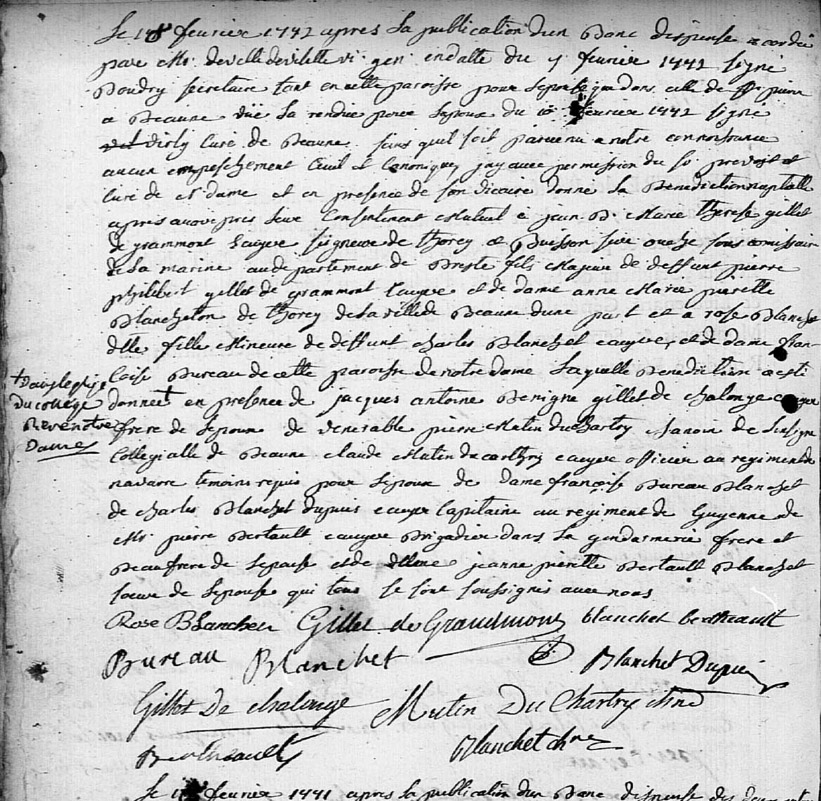 Le 14 février 1742 apres La publication d'un Banc dispense accordée
pare Mr. develle devilette vi. gen. en datte du 5 fevrier 1742 signé
Boudry secretaire tant en cette paroisse pour Lepouse que dans celle de St pierre
a Beaune vüe La rendüe pour Lepoux du 10 fevrier 1742 signé
curé de Beaune. sans quil soit parvenu a notre connoissance
aucun empeschement Civil et Canonique, jay avec permission du Sr prevost et
Curé de N dame et en presence de son vicaire donné la Benediction nuptialle
apres avoir pris leur Consentement Mutuel a jean B. Marie therese gillet
de grammont Ecuyer seigneur de thorey et Buisson sous comissaire
de La marine au departement de Breste fils Majeur de deffunt pierre
philibert gillet de grammont Ecuyer et de dame anne Marie pierette
Blancheton de thorey de La ville de Beaune d'une part et a rose Blanchet
dlle fille Mineure de deffunt charles Blanchet ecuyer, et de dame fran-
coise Bureau de cette paroisse de notre dame Laquelle Benediction a esti
† dans leglise
du college
de notre
Dame
donnee † en presence de jacques antoine Benigne gillet de chalonge ecuyer
frere de Lepoux de venerable pierre Mutin duchartry chanoine de Linsigne
Collegialle de Beaune claude Mutin ducarthry ecuyer officier au regiment de
navarre temoins requis pour Lepoux de dame françoise Bureau Blanchet
de charles Blanchet dupuis ecuyer Capitaine au regiment de Guyenne de
Mr. pierre Bertault ecuyer Brigadier dans La gendarmerie frere et
Beaufrere de Lepouse et de jeanne pierette Bertault Blanchet
soeur de Lepouse qui tous se sont soussignés avec nous
Rose Blanchet Gillet de Grandmont blanchet bertheault
Bureau Blanchet Blanchet Dupui
Gillet De chalonge Mutin Du Chartry chne
Bertheault Blanchet chne
Le fevrier 1741 apres La publication d'un Banc dispense des deux autres